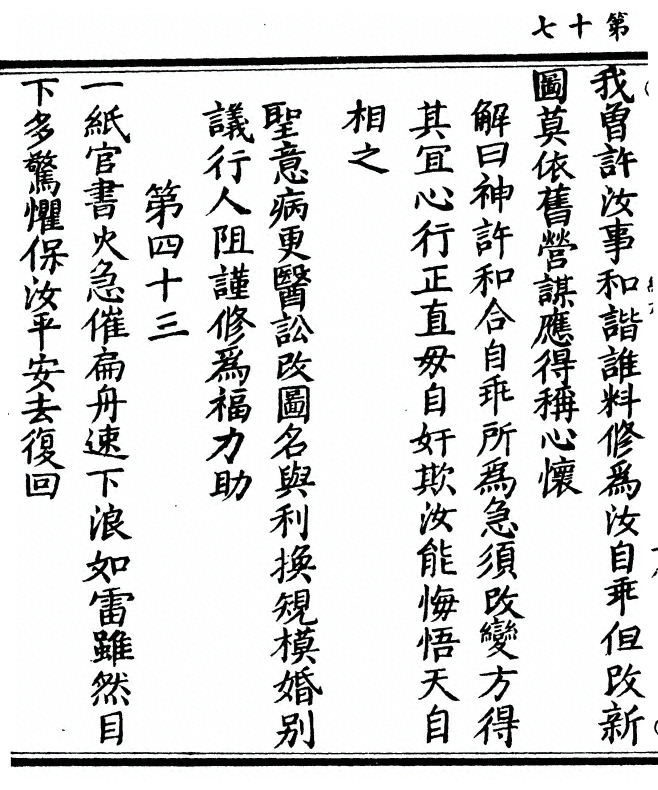 第十七
我曾許汝事和諧誰料修為汝自乖但改新
圖莫依舊營謀應得稱心懷
解曰神許和合自乖所為急須改變方得
其冝心行正直毋自奸欺汝能悔悟天自
相之
聖意病更醫訟改圖名與利換規模婚别
議行人阻謹修為福力助
第四十三
一紙官書火急催扁舟速下浪如雷雖然目
下多驚懼保汝平安去復回